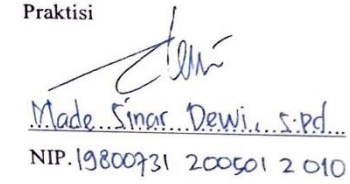 Praktisi
Made Sinar Dewi, S.Pd
NIP. 19800731 200501 2 010